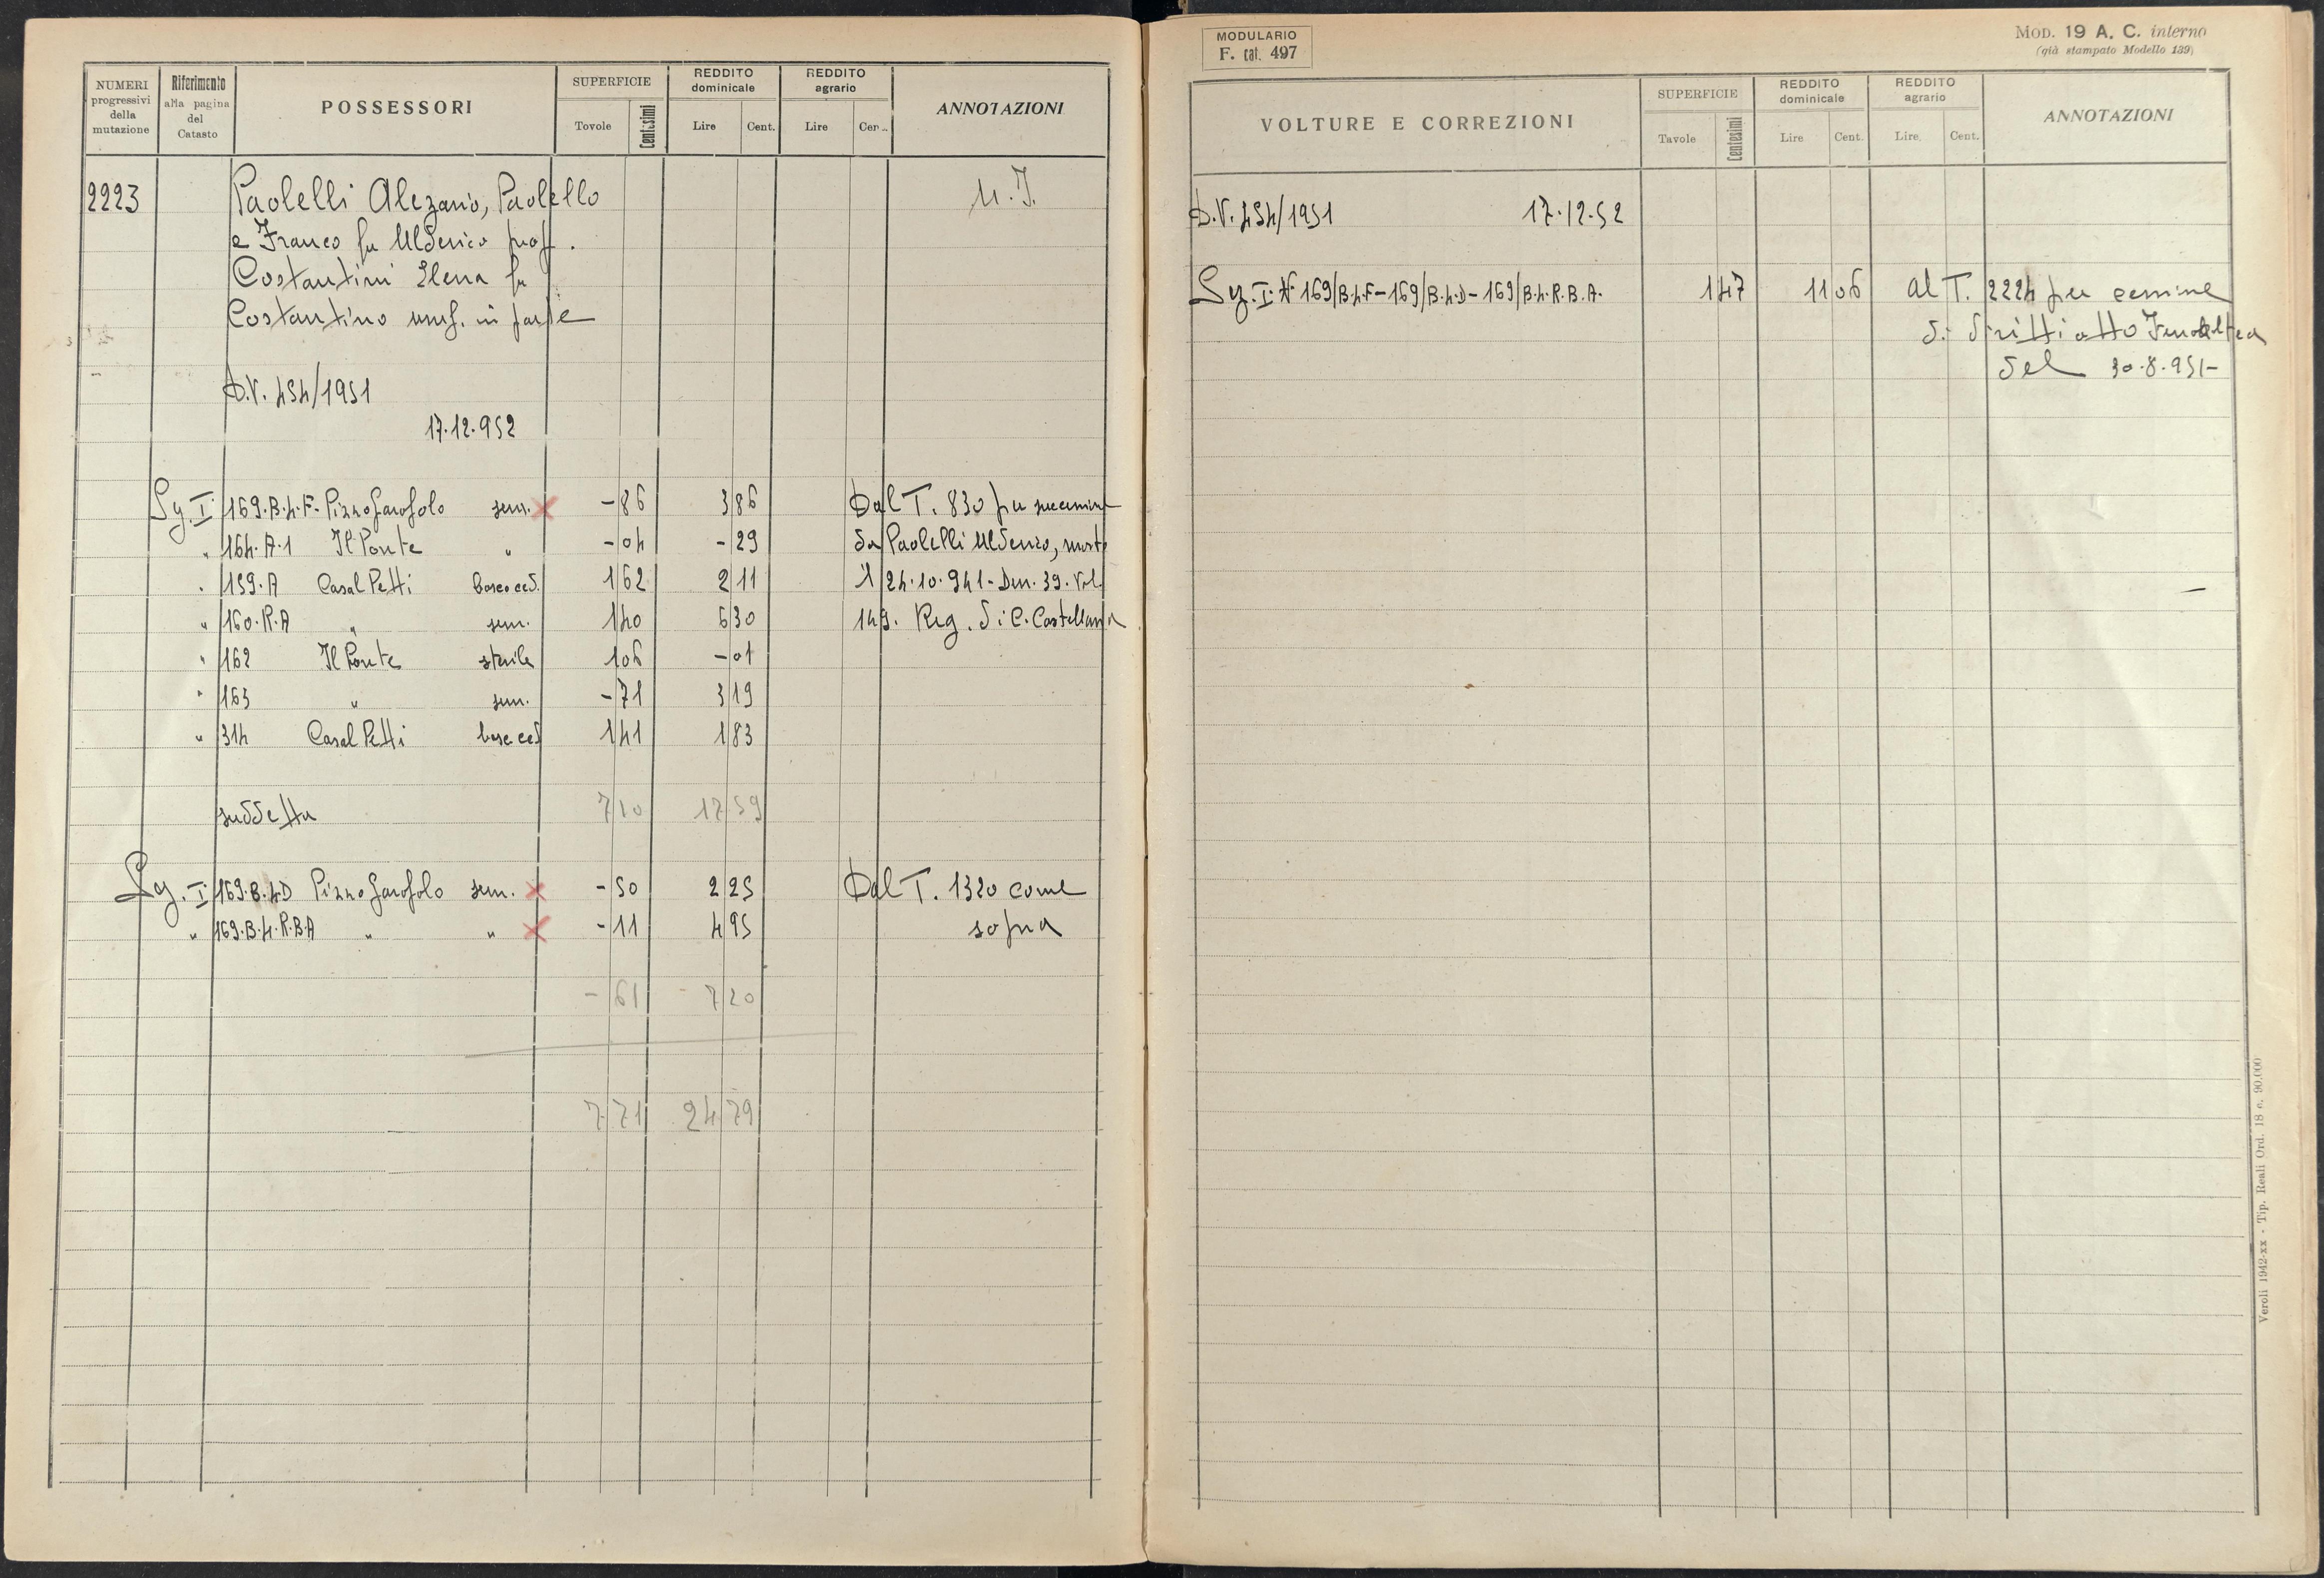 NUMERI progressivi della mutazione
Riferimento alla pagina del Catasto
POSSESSORI
SUPERFICIE
Tovole Centesimi
REDDITO dominicale
Lire Cent.
REDDITO agrario
Lire Cer..
ANNOTAZIONI
2223 Paolelli Alezanio, Paolello
e Franco fu Ulderico prop.
Costantini Elena fu
Costantino usuf. in parte
D.V. 454/1951
17.12.952
Sy. I 169.B.4.F. Pizzo Garofolo sem. × -86 3 86 Dal T. 830 per successione
" 164.A.1 Il Ponte " -04 -29 da Paolelli Ulderico, morto
" 159.A Casal Petti bosco ced. 1 62 2 11 1 24.10.941 - Den. 39. Vol.
" 160.R.A " sem. 1 40 6 30 149. Reg. di C. Castellana
" 162 Il Ponte sterile 1 06 -01
" 163 " sem. -71 3 19
" 314 Casal Petti bosc. ced 1 41 1 83
suddetta 7 10 17 59
Sy. I 169.B.4.D Pizzo Garofolo sem. × -50 2 25 Dal T. 1320 come
" 169.B.4.R.B.A " " × -11 4 95 sopra
-61 7 20
7 71 24 79
MODULARIO
F. cat. 497
MOD. 19 A. C. interno
(già stampato Modello 139)
VOLTURE E CORREZIONI
SUPERFICIE
Tavole Centesimi
REDDITO dominicale
Lire Cent.
REDDITO agrario
Lire Cent.
ANNOTAZIONI
D.V. 454/1951 17.12.52
Sy. I. N. 169/B.4.F - 169/B.4.D - 169/B.4.R.B.A. 1 47 11 06 al T. 2224 per cessione
di diritti atto
del 30.8.951-
Veroli 1942-XX - Tip. Reali Ord. 18 c. 90.000